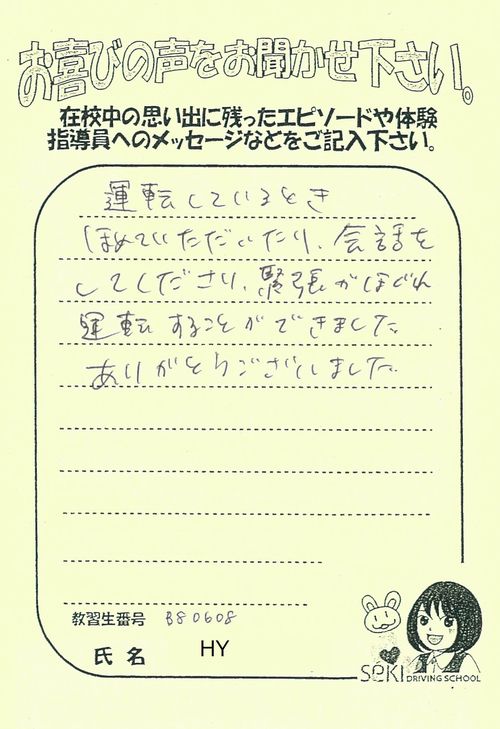 お喜びの声をお聞かせ下さい。
在校中の思い出に残ったエピソードや体験
指導員へのメッセージなどをご記入下さい。
運転しているとき
ほめていただいたり、会話を
してくださり、緊張がほぐれ
運転することができました
ありがとうございました
教習生番号 B80608
氏名 HY
SéKI DRIVING SCHOOL